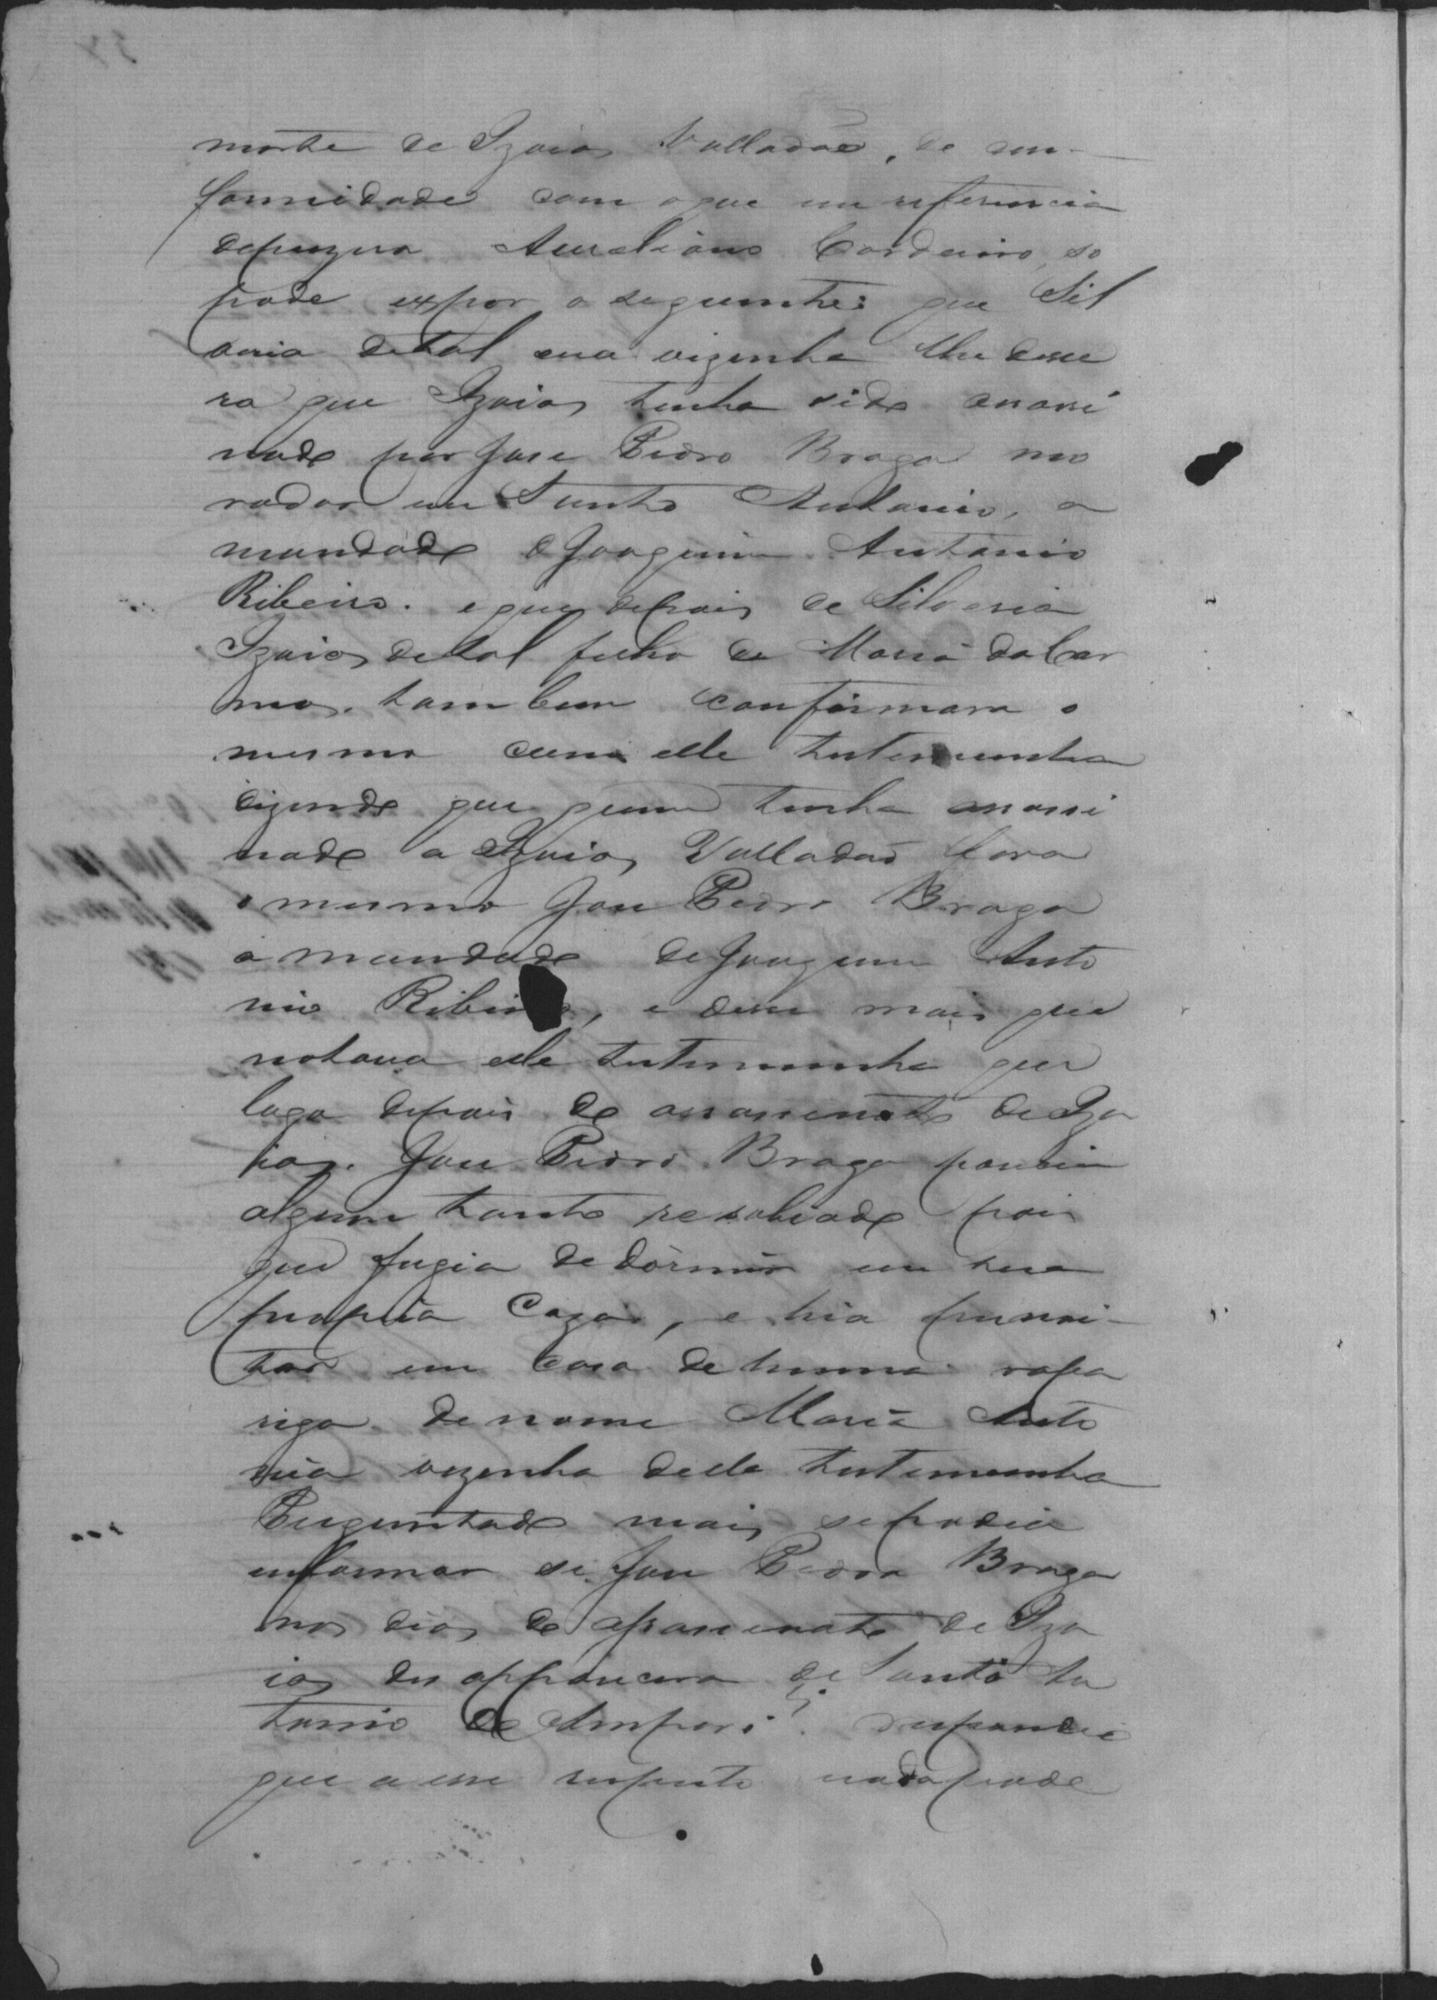 morte de Izaias Valladão, de con-
formidade com o que em referencia
depuzera Aureliano Cordeiro, so
pode expor o seguinte: que Sil
veria de tal sua vizinha lhe disse
ra que Izaias tinha sido assassi
nado por Jose Pedro Braga mo
rador em Santo Antonio, a
mandado de Joaquim Antonio
Ribeiro. e que depois de Silveria
Izaias de tal filho de Maria do Car
mo. tambem confirmara o
mesmo com elle testemunha
dizendo que quem tinha assassi
nado a Izaias Valladão fora
o mesmo Jose Pedro Braga
a mandado de Joaquim Anto
nio Ribeiro, e disse mais que
notava elle testemunha que
logo depois do assassinato de Iza
ias. Jose Pedro Braga parecia
algum tanto resabiado pois
que fugia de dormir em sua
propria caza, e hia pernoi-
tar em casa de huma rapa
riga de nome Maria Anto
nia vezinha delle testemunha
Perguntado mais se podia
informar se Jose Pedro Braga
nos dias do assassinato de Iza
ias desapparecera de Santo An
tonio do Ampari? respondeo
que a esse respeito nada pode